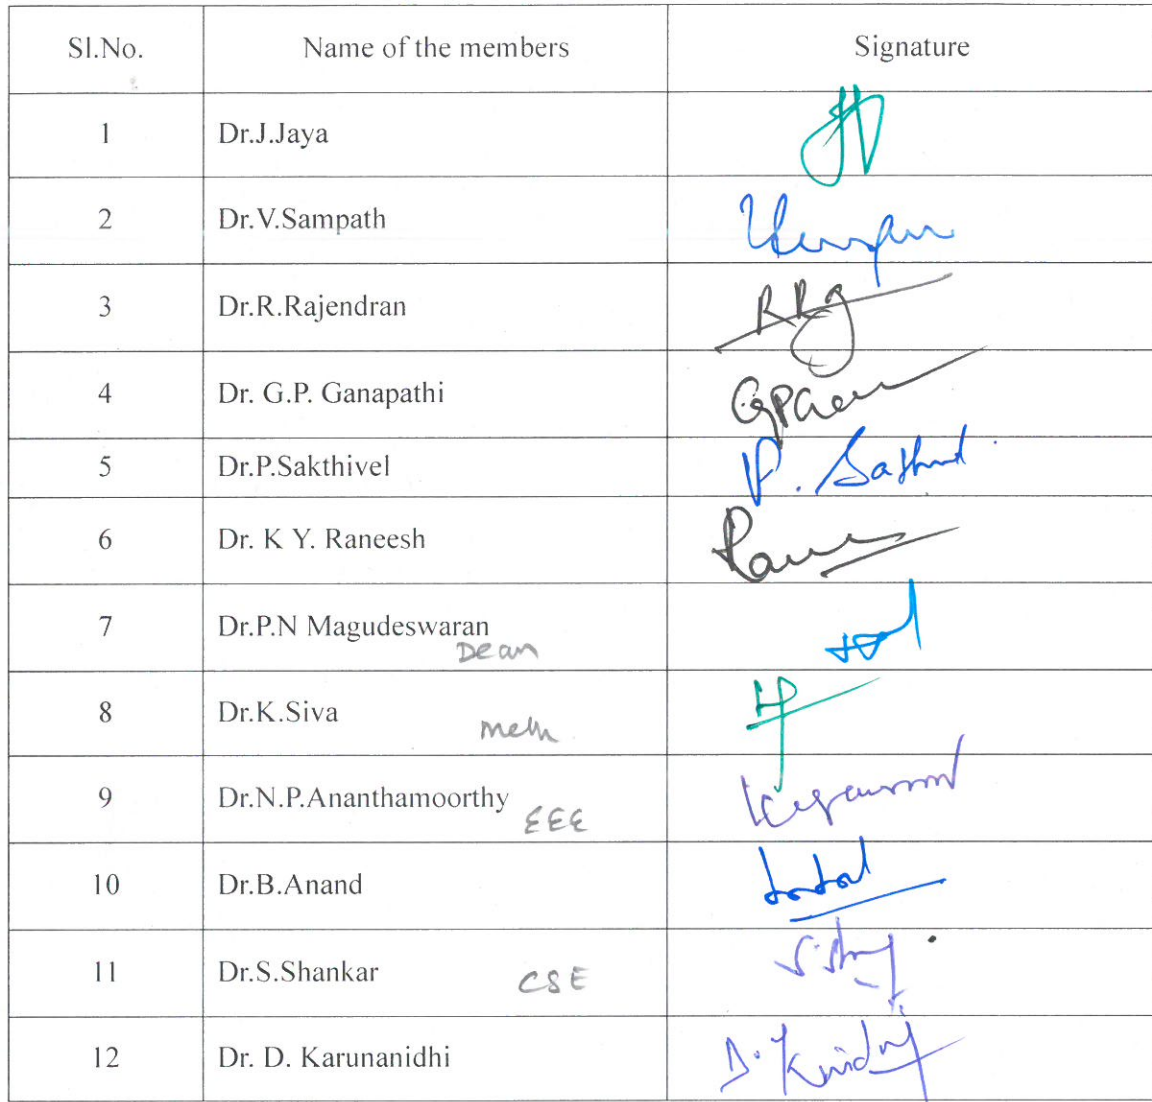 Sl.No. Name of the members Signature
1 Dr.J.Jaya
2 Dr.V.Sampath
3 Dr.R.Rajendran RRJ
4 Dr. G.P. Ganapathi
5 Dr.P.Sakthivel
6 Dr. K Y. Raneesh
7 Dr.P.N Magudeswaran
Dean
8 Dr.K.Siva
Mech
9 Dr.N.P.Ananthamoorthy
EEE
10 Dr.B.Anand
11 Dr.S.Shankar CSE
12 Dr. D. Karunanidhi